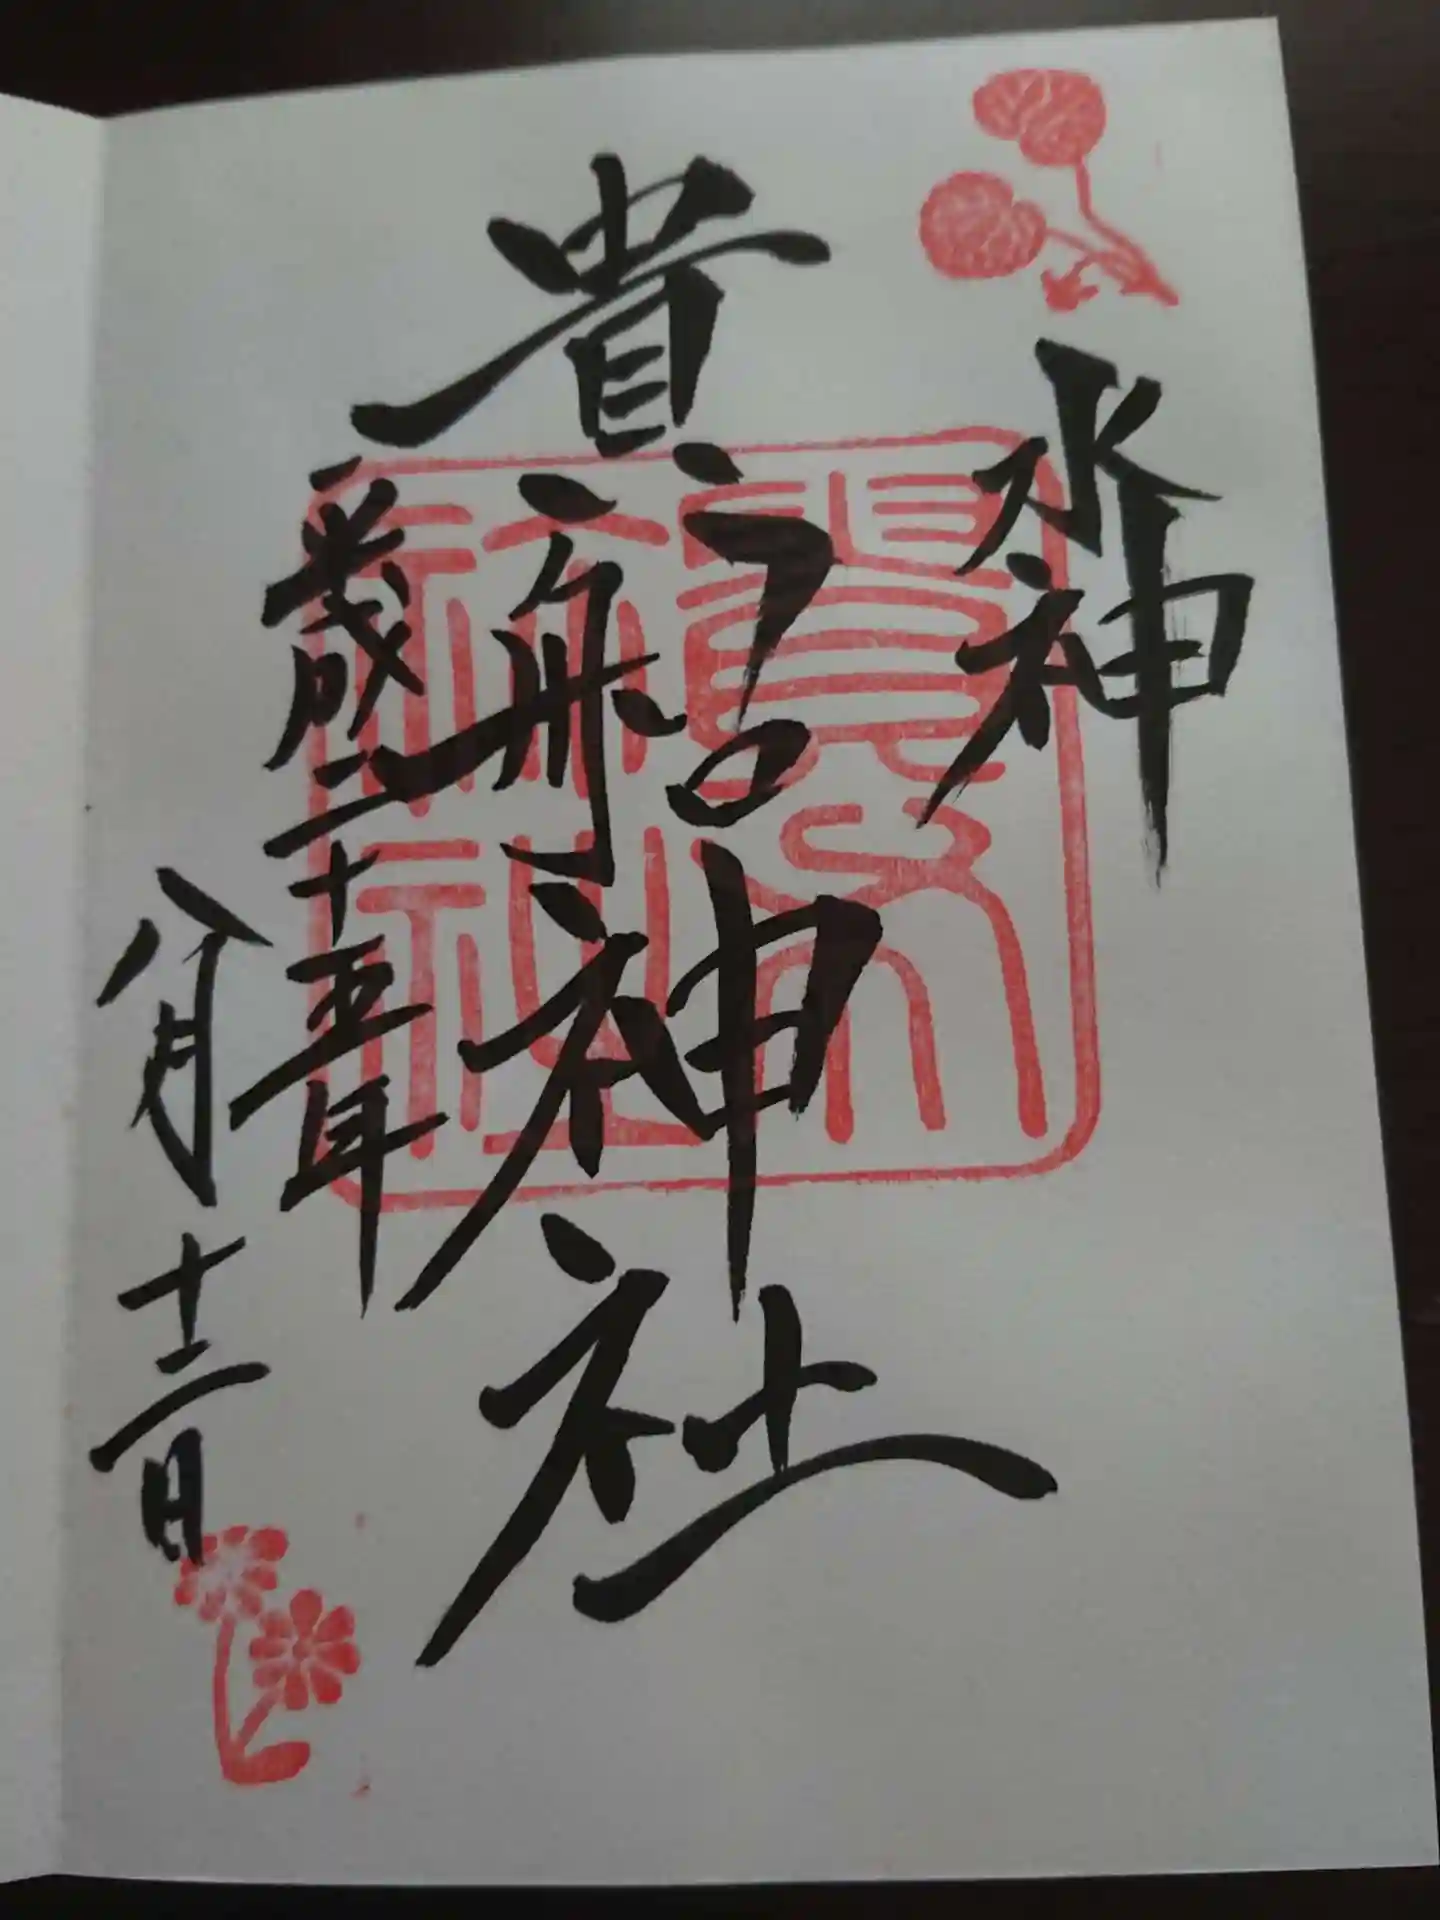 水神
貴船神社
歳二十五年
八月十二日
貴船
神社